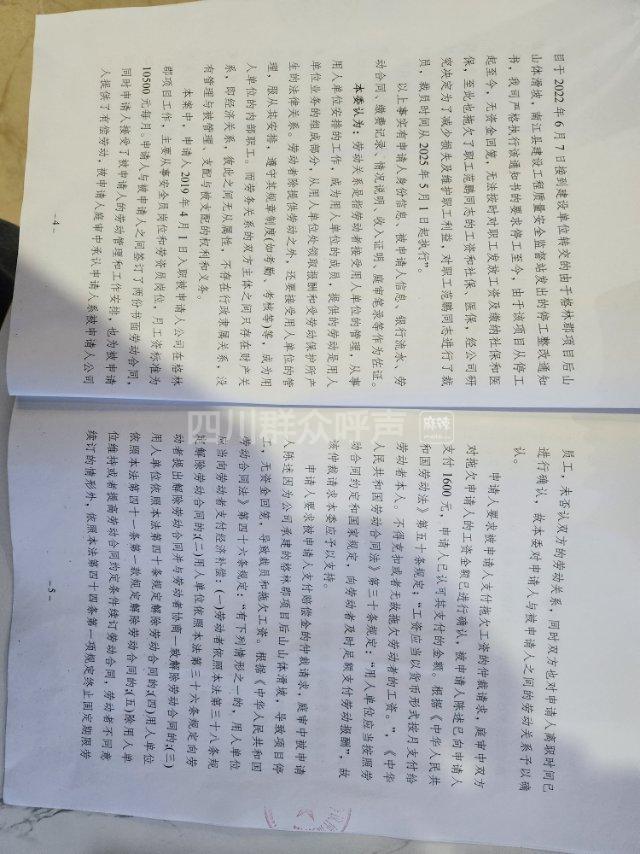 目于 2022 年 6 月 7 日接到建设单位转交的由于格林郡项目后山
山体滑坡，南江县建设工程质量安全监督站发出的停工整改通知
书，我司严格执行该通知书的要求停工至今，由于该项目从停工
起至今，无资金回笼，无法按时对职工发放工资及缴纳社保和医
保，至此也拖欠了职工范鹏同志的工资和社保、医保，经公司研
究决定为了减少损失及维护职工利益，对职工范鹏同志进行了裁
员，裁员时间从 2025 年 5 月 1 日起执行”。
以上事实有申请人身份信息、被申请人信息、银行流水、劳
动合同、缴费记录、情况说明、收入证明、庭审笔录等作为佐证。
本委认为：劳动关系是指劳动者接受用人单位的管理，从事
用人单位安排的工作，成为用人单位的成员，提供的劳动是用人
单位业务的组成部分，从用人单位处领取报酬和受劳动保护所产
生的法律关系。劳动者除提供劳动之外，还要接受用人单位的管
理，服从其安排，遵守其规章制度(如考勤、考核等)等，成为用
人单位的内部职工。而劳务关系的双方主体之间只存在财产关
系，即经济关系，彼此之间无从属性，不存在行政隶属关系，没
有管理与被管理、支配与被支配的权利和义务。
本案中，申请人 2019 年 4 月 1 日入职被申请人公司在格林
郡项目工作，主要从事安全员岗位和劳资员岗位，月工资标准为
10500 元每月。申请人与被申请人之间签订了两份书面劳动合同，
同时申请人接受了被申请人的劳动管理和工作安排，也为被申请
人提供了有偿劳动，被申请人庭审中承认申请人系被申请人公司
- 4 -
员工，未否认双方的劳动关系，同时双方也对申请人离职时间已
进行确认，故本委对申请人与被申请人之间的劳动关系予以确
认。
申请人要求被申请人支付拖欠工资的仲裁请求，庭审中双方
对拖欠申请人的工资金额已进行确认，被申请人陈述已向申请人
支付 1600 元，申请人已认可其支付的金额。根据《中华人民共
和国劳动法》第五十条规定：“工资应当以货币形式按月支付给
劳动者本人。不得克扣或者无故拖欠劳动者的工资。”，《中华
人民共和国劳动合同法》第三十条规定：“用人单位应当按照劳
动合同约定和国家规定，向劳动者及时足额支付劳动报酬”，故
该仲裁请求本委应予以支持。
申请人要求被申请人支付赔偿金的仲裁请求，庭审中被申请
人陈述因为公司承建的格林郡项目后山山体滑坡，导致项目停
工，无资金回笼，导致裁员和拖欠工资。根据《中华人民共和国
劳动合同法》第四十六条规定，“有下列情形之一的，用人单位
应当向劳动者支付经济补偿：(一)劳动者依照本法第三十八条规
定解除劳动合同的；(二)用人单位依照本法第三十六条规定向劳
动者提出解除劳动合同并与劳动者协商一致解除劳动合同的；(三)
用人单位依照本法第四十条规定解除劳动合同的；(四)用人单位
依照本法第四十一条第一款规定解除劳动合同的；(五)除用人单
位维持或者提高劳动合同约定条件续订劳动合同，劳动者不同意
续订的情形外，依照本法第四十四条第一项规定终止固定期限劳
- 5 -
四川群众呼声
麻辣